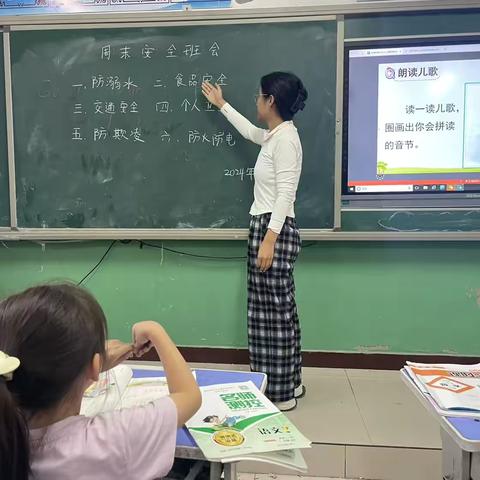 周末安全班会
一、防溺水 二、食品安全
三、交通安全 四、个人卫
五、防欺凌 六、防火防电
2024年
朗读儿歌
读一读儿歌，
圈画出你会拼读
的音节。
名师
测控
语文